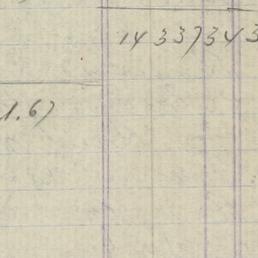 14 337343
1.67